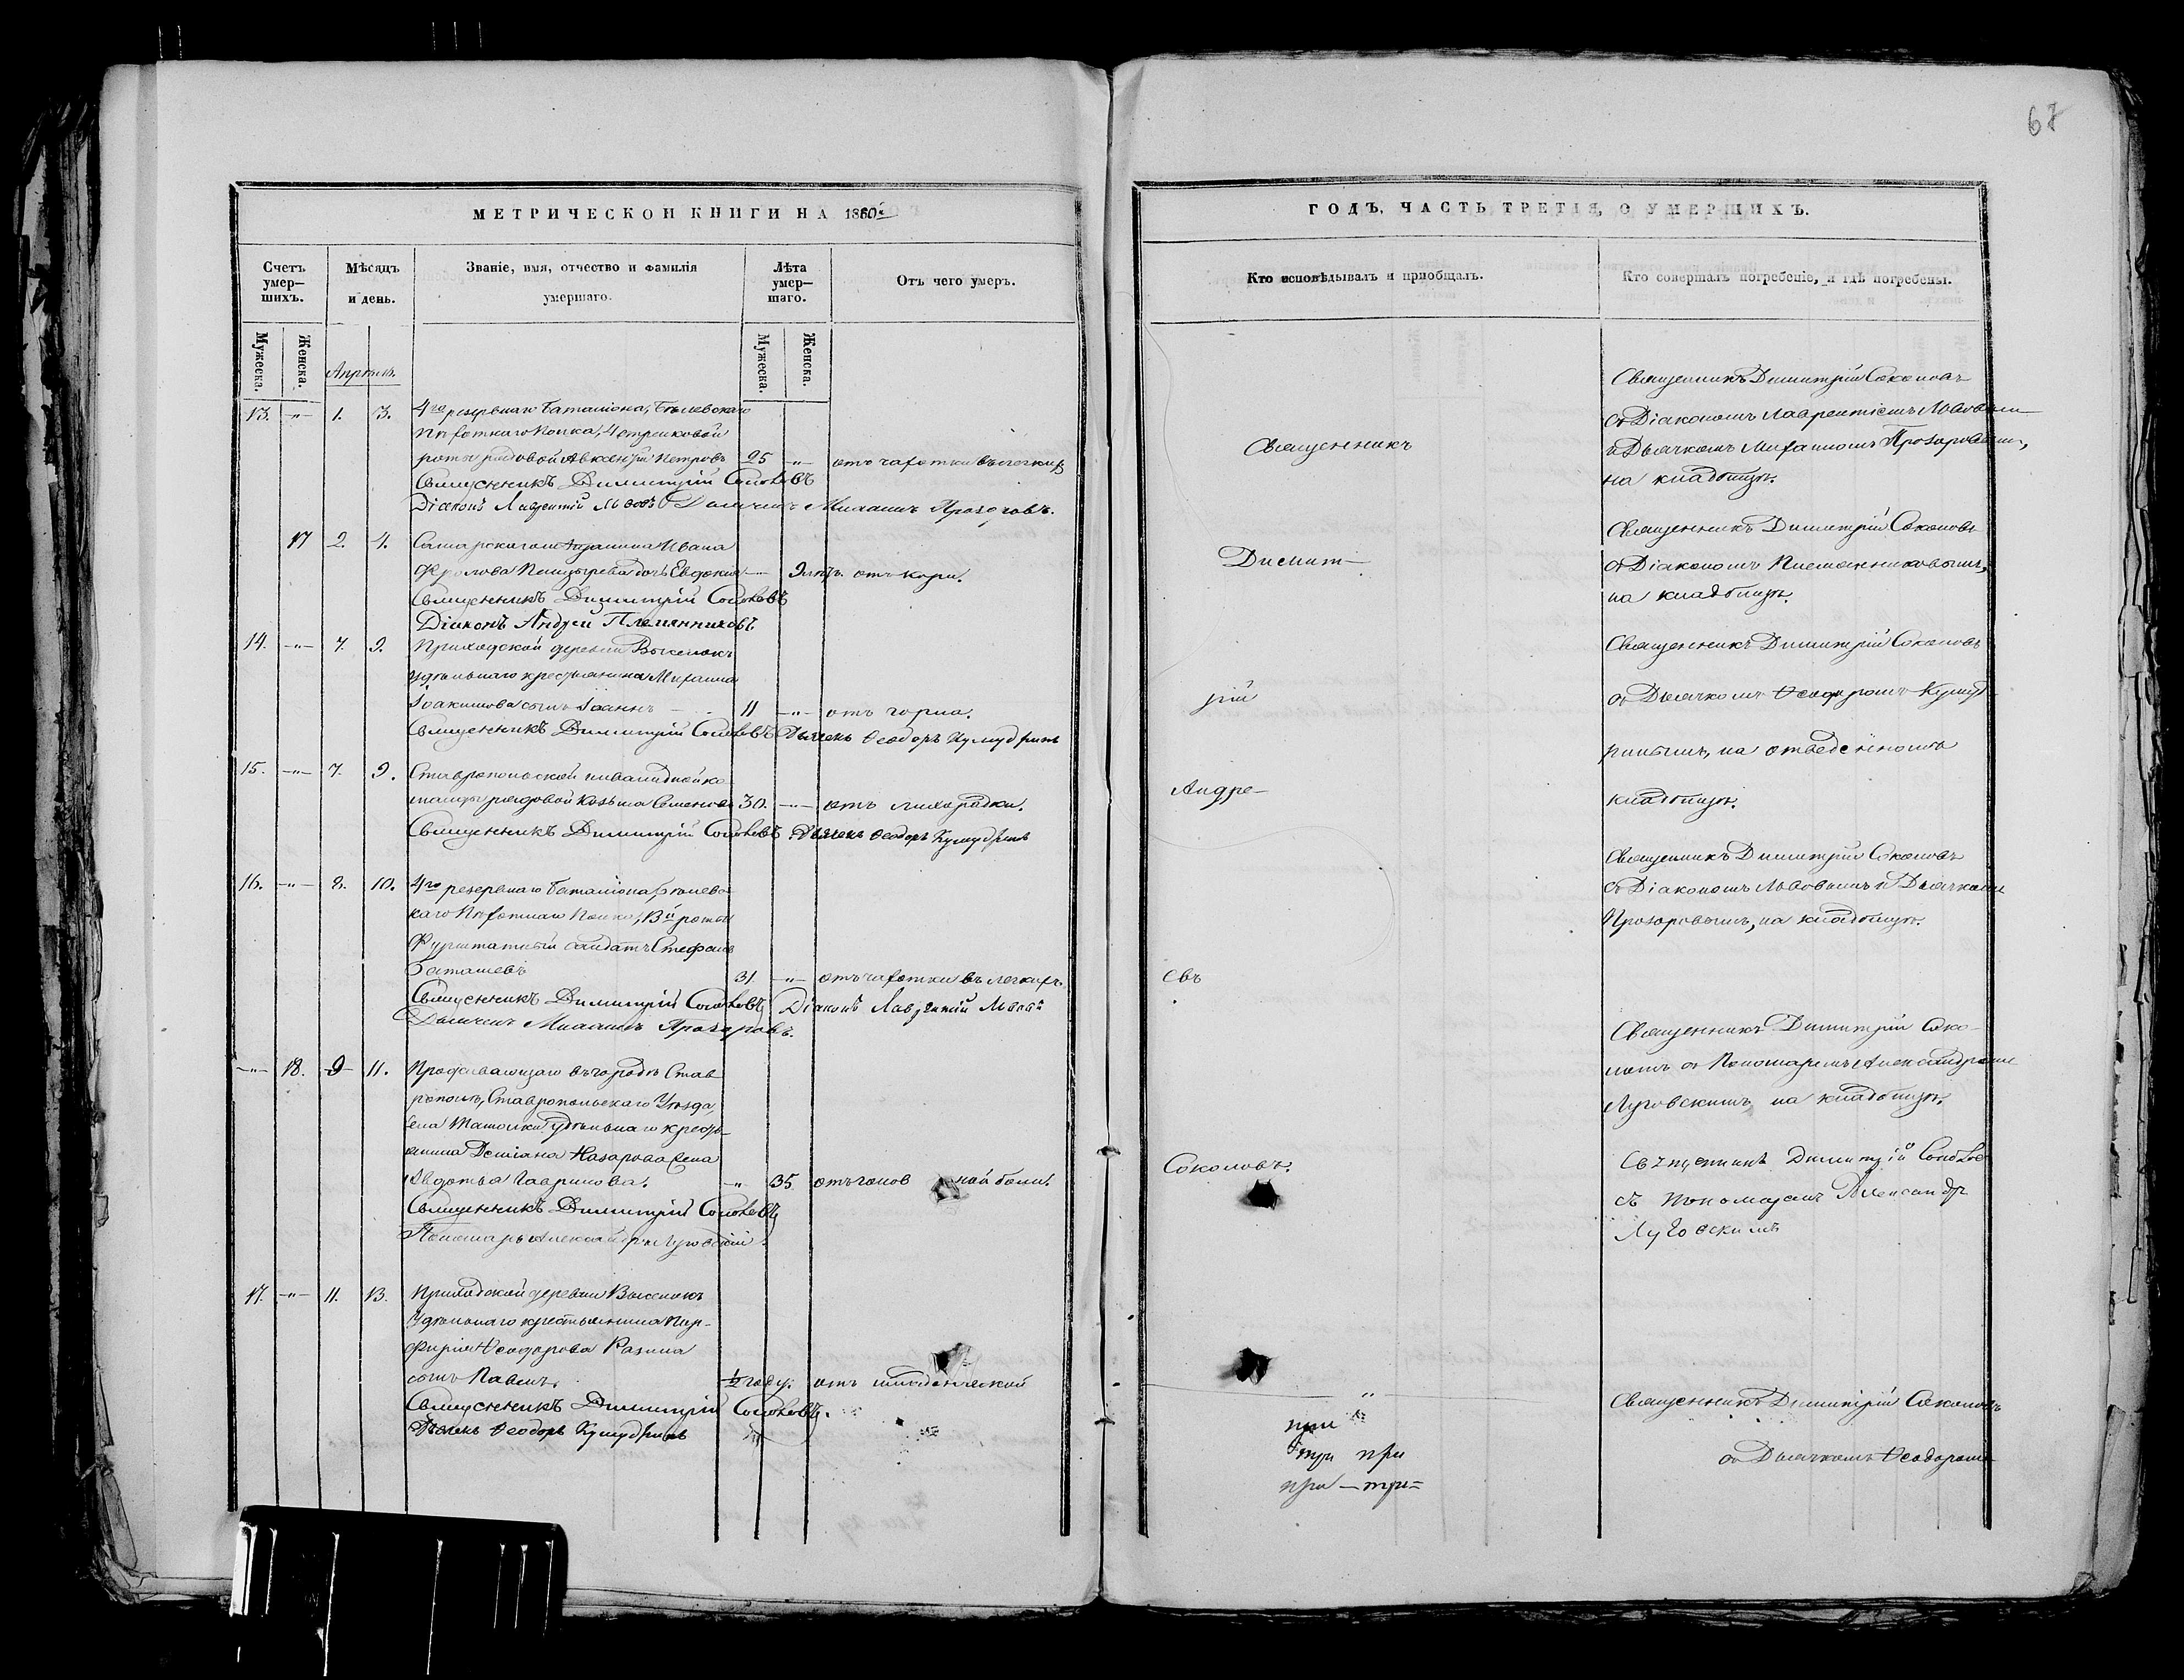 67
МЕТРИЧЕСКОЙ КНИГИ НА 1860й
Счетъ умер-шихъ.
Мѣсяцъ и день.
Званіе, имя, отчество и фамилія умершаго.
Лѣта умер-шаго.
Отъ чего умеръ.
Мужеска.
Женска.
Мужеска.
Женска.
Апрѣль.
13. -"- 1. 3. 4го резервнаго баталіона, Бѣлевскаго
Пѣхотнаго Полка, 4 стрелковой
роты рядовой Авксентій Петровъ 25 -"- отъ чахотки въ легкихъ
Священникъ Димитрій Соколовъ
Діаконъ Лаврентій Львовъ Дьячекъ Михаилъ Прозоровъ.
17 2. 4. Самарскаго мѣщанина Ивана
Фролова дочь Евдокія — 9 лѣтъ. отъ кори.
Священникъ Димитрій Соколовъ
Діаконъ Андрей Племянниковъ
14. -"- 7. 9. Приходской деревни Выселокъ
удѣльнаго крестьянина Михаила
Іоакимова сынъ Іоаннъ — 11 -"- отъ горла.
Священникъ Димитрій Соколовъ Дьячекъ Ѳеодоръ Кумудринъ
15. -"- 7. 9. Ставропольской инвалидной ко
манды рядовой Козьма Семеновъ 30. -"- отъ лихорадки.
Священникъ Димитрій Соколовъ Дьячекъ Ѳеодоръ Кумудринъ
16. -"- 8. 10. 4го резервнаго баталіона, Бѣлевс
каго Пѣхотнаго Полка, 13й роты
Фурштатный салдатъ Стефанъ
Баташевъ 31 -"- отъ чахотки въ легкихъ
Священникъ Димитрій Соколовъ Діаконъ Лаврентій Львовъ
Дьячекъ Михаилъ Прозоровъ.
-"- 18. 9 11. Проживающаго въ городѣ Став
рополѣ, Ставропольскаго Уѣзда,
села Ташолки удѣльнаго кресть-
янина Деміана Назарова жена
Авдотья Гаврилова. -"- 35. отъ голов ной боли.
Священникъ Димитрій Соколовъ
Пономарь Александръ Луговскій.
17. -"- 11. 13. Приходской деревни Выселокъ
Удѣльнаго крестьянина Пор-
фирія Ѳеодорова Разина
сынъ Павелъ. ½ году. отъ младенческой
Священникъ Димитрій Соколовъ.
Дьячекъ Ѳеодоръ Кумудринъ
ГОДЪ, ЧАСТЬ ТРЕТІЯ, О УМЕРШИХЪ.
Кто исповѣдывалъ и пріобщалъ.
Кто совершалъ погребеніе, и гдѣ погребены.
Священникъ
Димит-
рій
Андре-
евъ
Соколовъ.
"
при
при при
при — при=
Священникъ Димитрій Соколовъ
съ Діакономъ Лаврентіемъ Львовымъ
и Дьячкомъ Михаиломъ Прозоровымъ,
на кладбищѣ.
Священникъ Димитрій Соколовъ
съ Діакономъ Племянниковымъ,
на кладбищѣ.
Священникъ Димитрій Соколовъ
съ Дьячкомъ Ѳеодоромъ Кумуд
ринымъ, на отведенномъ
кладбищѣ.
Священникъ Димитрій Соколовъ
съ Діакономъ Львовымъ и Дьячкомъ
Прозоровымъ, на кладбищѣ.
Священникъ Димитрій Соко-
ловъ съ Пономаремъ Александромъ
Луговскимъ, на кладбищѣ.
Священникъ Димитрій Соколов
съ Пономаремъ Александр
Луговскимъ
Священникъ Димитрій Соколовъ
съ Дьячкомъ Ѳеодоромъ